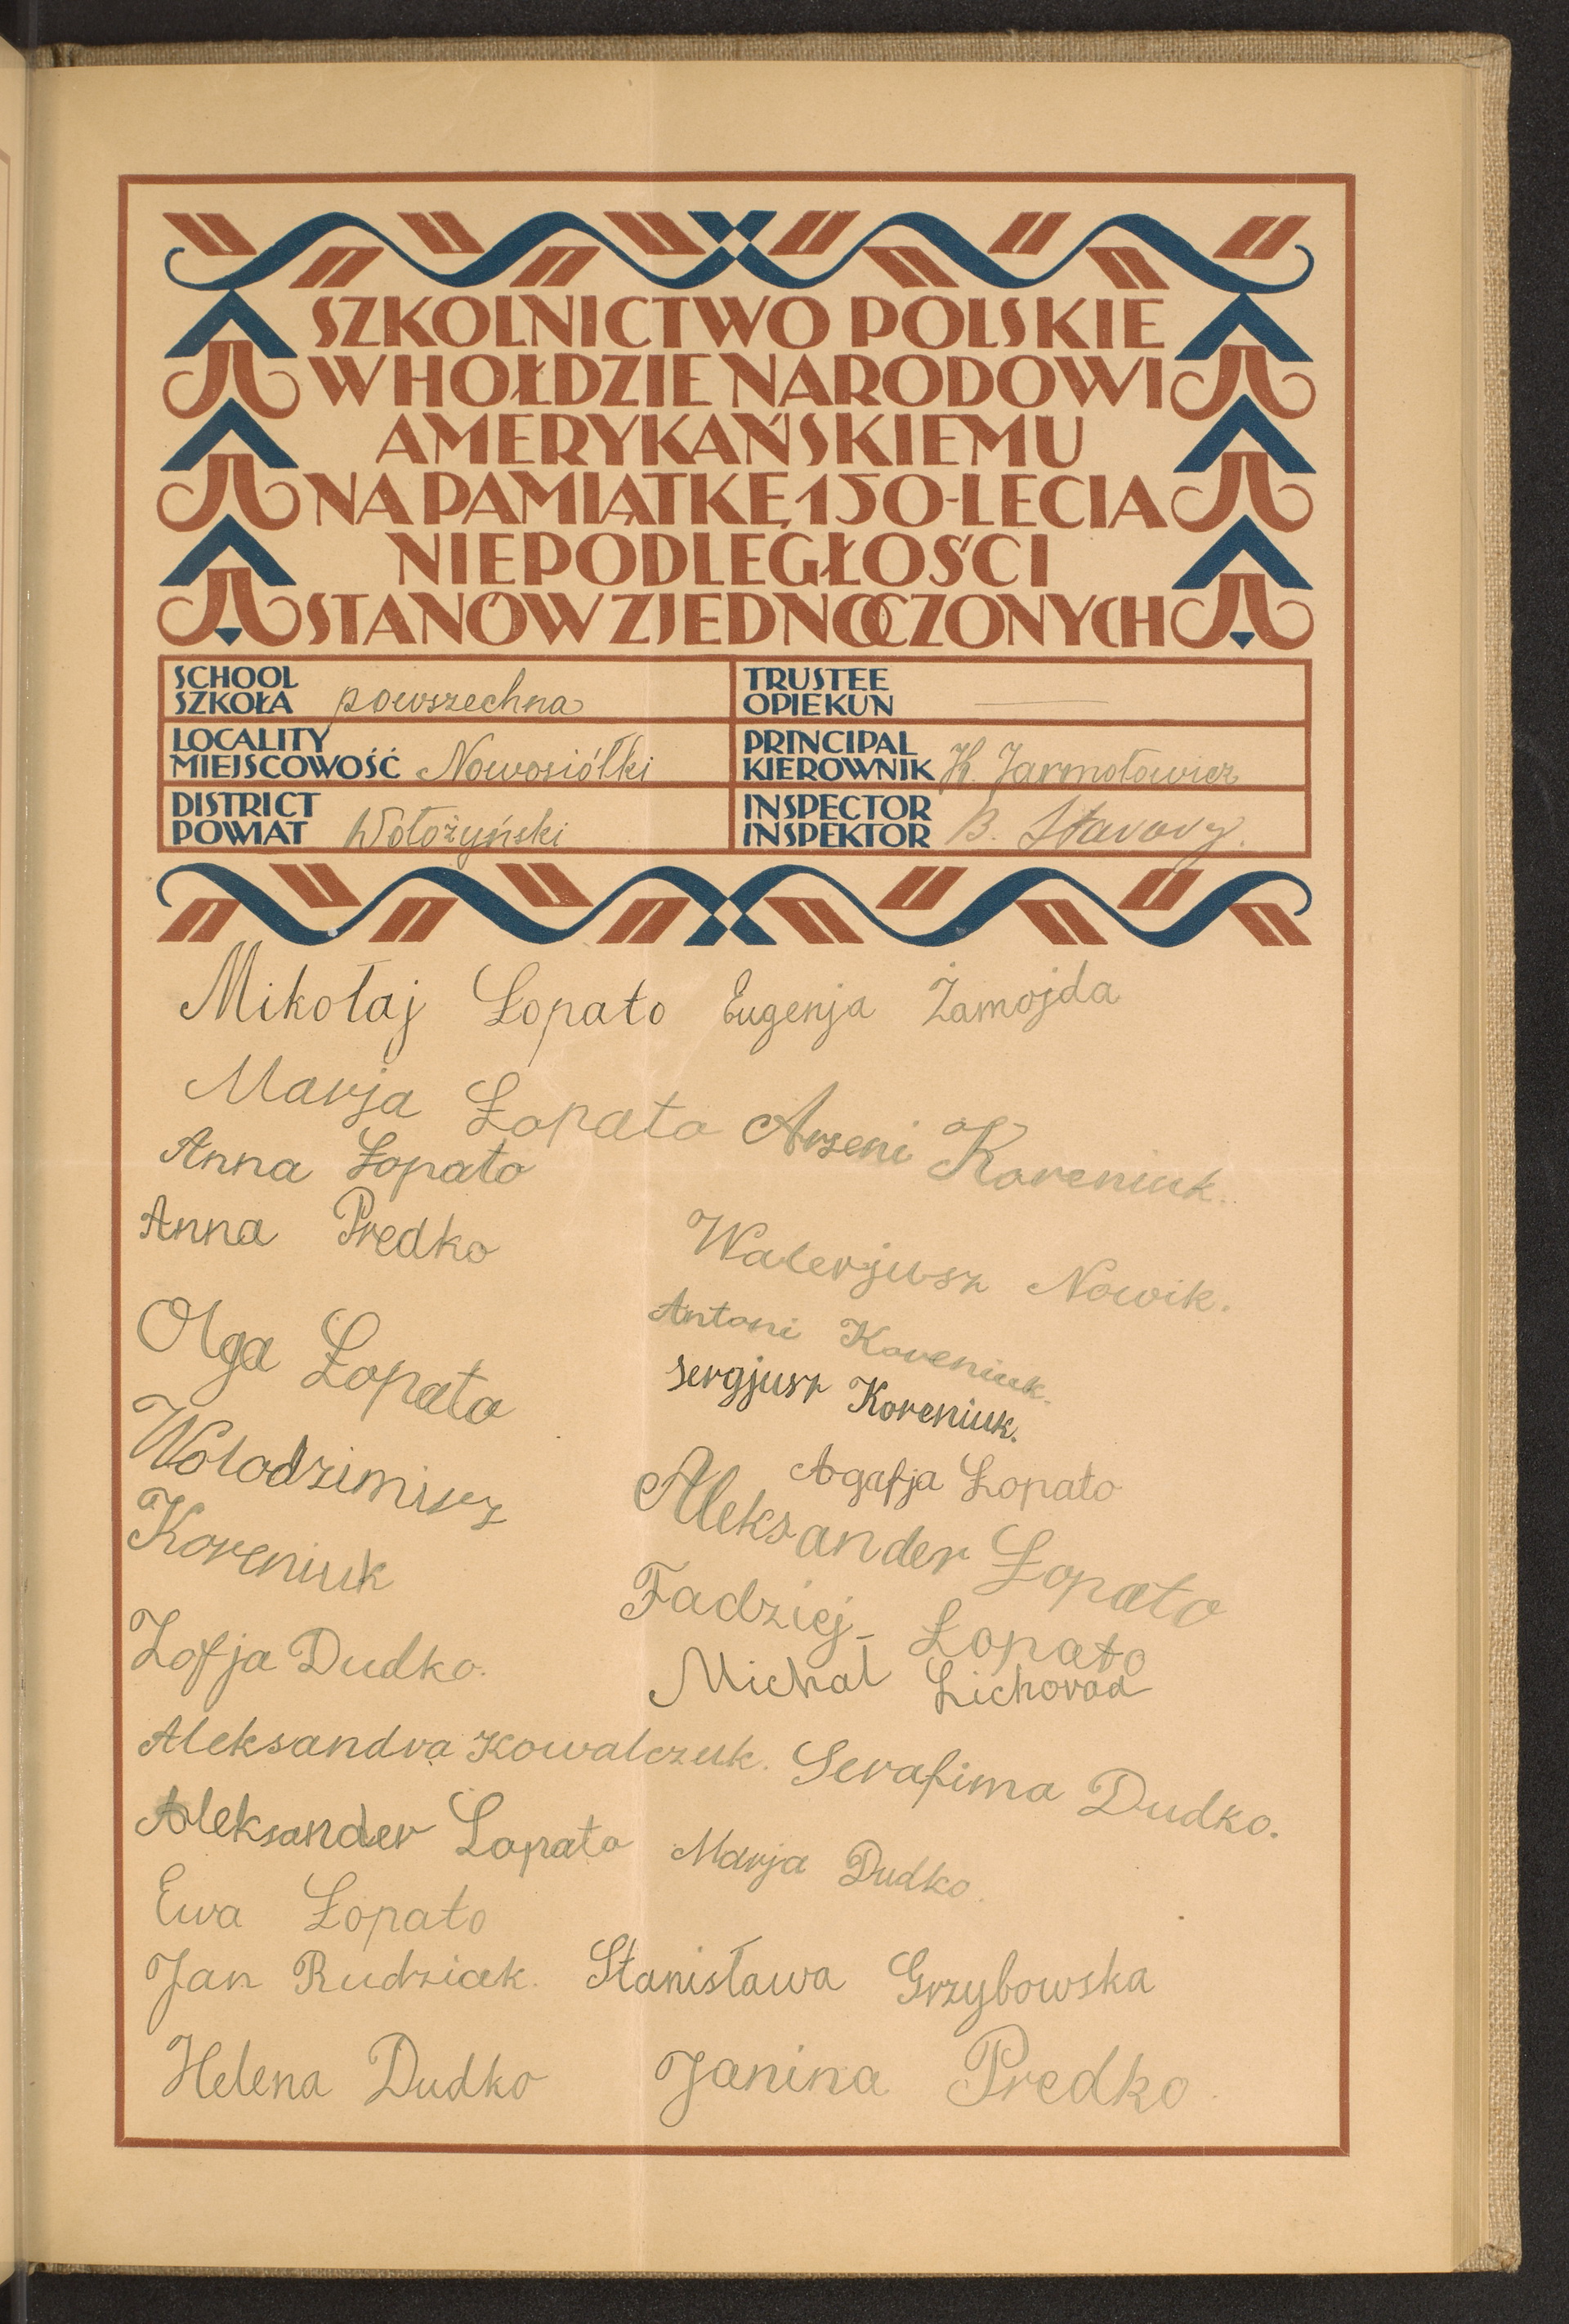 SZKOLNICTWO POLSKIE
W HOŁDZIE NARODOWI
AMERYKAŃSKIEMU
NA PAMIĄTKĘ 150-LECIA
NIEPODLEGŁOŚCI
STANÓW ZJEDNOCZONYCH
SCHOOL
SZKOŁA powszechna
TRUSTEE
OPIEKUN
LOCALITY
MIEJSCOWOŚĆ Nowosiółki
PRINCIPAL
KIEROWNIK H. Jarmołowicz
DISTRICT
POWIAT Wołożyński
INSPECTOR
INSPEKTOR B. Stavovy.
Mikołaj Łopato Eugenja Żamojda
Marja Łopato Arzeni Koreniuk.
Anna Łopato
Anna Predko
Walerjusz Nowik.
Olga Łopato
Antoni Koreniuk.
Sergjusz Koreniuk.
Wolodzimierz
Koreniuk
Agafja Łopato
Aleksander Łopato
Fadziej Łopato
Zofja Dudko.
Michal Lichorad
Aleksandra Kowalczuk. Serafima Dudko.
Aleksander Lopato Marja Dudko.
Ewa Łopato
Jan Rudziak. Stanisława Grzybowska
Helena Dudko Janina Predko.